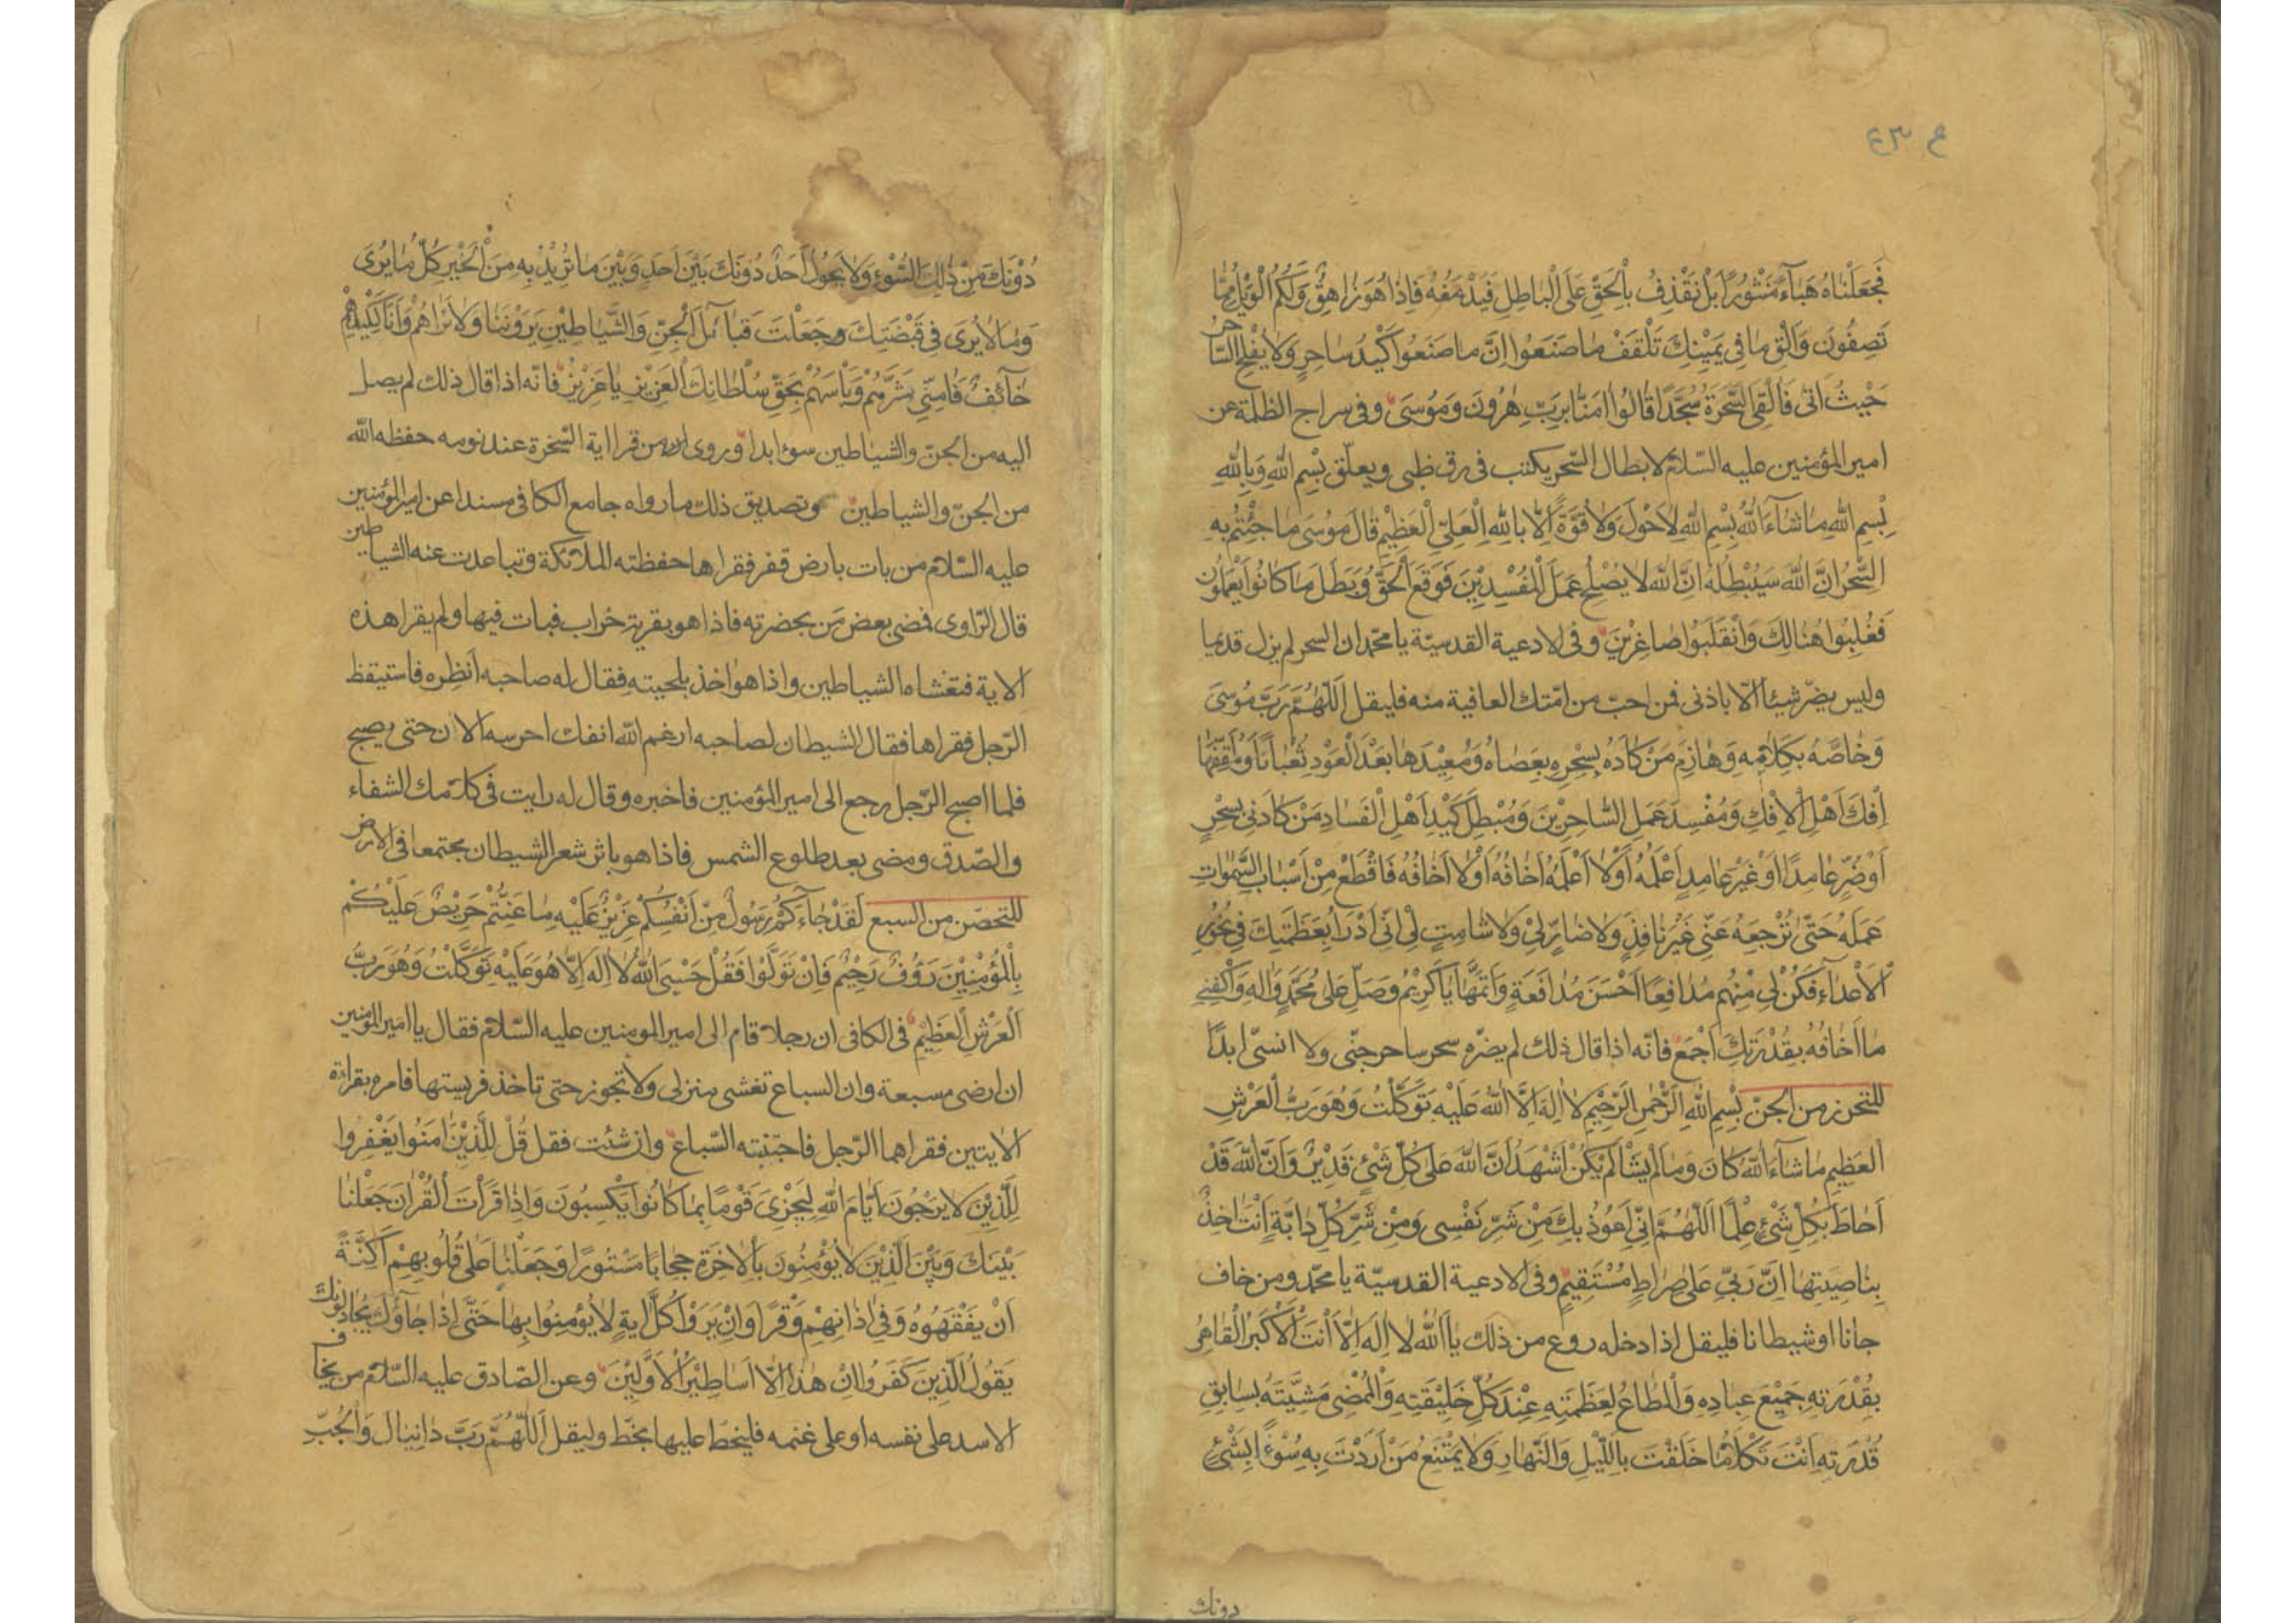 ع ٤٣
فَجَعَلْنَاهُ هَبَآءً مَنْثُورًا بَلْ نَقْذِفُ بِالْحَقِّ عَلَى الْبَاطِلِ فَيَدْمَغُهُ فَاِذَا هُوَ زَاهِقٌ وَلَكُمُ الْوَيْلُ مِمَّا
تَصِفُونَ وَاَلْقِ مَا فِي يَمِينِكَ تَلْقَفْ مَا صَنَعُوا اِنَّ مَا صَنَعُوا كَيْدُ سَاحِرٍ وَلَا يُفْلِحُ السَّاحر
حَيْثُ اَتٰى فَاُلْقِيَ السَّحَرَةُ سُجَّدًا قَالُوا اٰمَنَّا بِرَبِّ هٰرُونَ وَمُوسٰى وفى سراج الظلمة عن
امير المؤمنين عليه السّلام لابطال السّحر يكتب فى رق ظبى ويعلّق بِسْمِ اللهِ وَبِاللهِ
بِسْمِ اللهِ مَا شَآءَ اللهُ بِسْمِ اللهِ لَا حَوْلَ وَلَا قُوَّةَ اِلَّا بِاللهِ الْعَلِيِّ الْعَظِيمِ قَالَ مُوسٰى مَا جِئْتُمْ بِهِ
السِّحْرُ اِنَّ اللهَ سَيُبْطِلُهُ اِنَّ اللهَ لَا يُصْلِحُ عَمَلَ الْمُفْسِدِيْنَ فَوَقَعَ الْحَقُّ وَبَطَلَ مَا كَانُوا يَعْمَلُونَ
فَغُلِبُوا هُنَالِكَ وَانْقَلَبُوا صَاغِرِيْنَ وفى الادعية القدسيّة يا محمّد ان السحر لم يزل قديما
وليس يضرّ شيئا الّا باذنى فمن احبّ من امّتك العافية منه فليقل اَللّٰهُمَّ رَبَّ مُوسٰى
وَخَاصَّهُ بِكَلَامِهِ وَهَازِمَ مَنْ كَادَهُ بِسِحْرِهِ بِعَصَاهُ وَمُعِيْدَهَا بَعْدَ الْعَوْدِ ثُعْبَانًا وَمُلَقِّفَهَا
اِفْكَ اَهْلِ الْاِفْكِ وَمُفْسِدَ عَمَلِ السَّاحِرِيْنَ وَمُبْطِلَ كَيْدِ اَهْلِ الْفَسَادِ مَنْ كَادَنِي بِسِحْرٍ
اَوْ ضُرٍّ عَامِدًا اَوْ غَيْرَ عَامِدٍ اَعْلَمُهُ اَوْ لَا اَعْلَمُهُ اَخَافُهُ اَوْ لَا اَخَافُهُ فَاقْطَعْ مِنْ اَسْبَابِ السَّمٰوَاتِ
عَمَلَهُ حَتّٰى تُرْجِعَهُ عَنِّي غَيْرَ نَافِذٍ وَلَا ضَارٍّ لِي وَلَا شَامِتٍ بِي اِنِّي اَدْرَأُ بِعَظَمَتِكَ فِي نُحُورِ
الْاَعْدَآءِ فَكُنْ لِي مِنْهُمْ مُدَافِعًا اَحْسَنَ مُدَافَعَةٍ وَاَتَمَّهَا يَا كَرِيْمُ وَصَلِّ عَلٰى مُحَمَّدٍ وَاٰلِهِ وَاكْفِنِي
مَا اَخَافُهُ بِقُدْرَتِكَ اَجْمَعَ فانّه اذا قال ذلك لم يضرّه سحر ساحر جنّى ولا انسىّ ابدًا
للتحرز من الجنّ بِسْمِ اللهِ الرَّحْمٰنِ الرَّحِيْمِ لَا اِلٰهَ اِلَّا اللهُ عَلَيْهِ تَوَكَّلْتُ وَهُوَ رَبُّ الْعَرْشِ
الْعَظِيمِ مَا شَآءَ اللهُ كَانَ وَمَا لَمْ يَشَأْ لَمْ يَكُنْ اَشْهَدُ اَنَّ اللهَ عَلٰى كُلِّ شَيْءٍ قَدِيْرٌ وَاَنَّ اللهَ قَدْ
اَحَاطَ بِكُلِّ شَيْءٍ عِلْمًا اَللّٰهُمَّ اِنِّي اَعُوذُ بِكَ مِنْ شَرِّ نَفْسِي وَمِنْ شَرِّ كُلِّ دَابَّةٍ اَنْتَ اٰخِذٌ
بِنَاصِيَتِهَا اِنَّ رَبِّي عَلٰى صِرَاطٍ مُسْتَقِيْمٍ وفى الادعية القدسيّة يا محمّد ومن خاف
جانا او شيطانا فليقل اذا دخله روع من ذلك يَا اَللهُ لَا اِلٰهَ اِلَّا اَنْتَ الْاَكْبَرُ الْقَاهِرُ
بِقُدْرَتِهِ جَمِيْعَ عِبَادِهِ وَالْمُطَاعُ لِعَظَمَتِهِ عِنْدَ كُلِّ خَلِيْقَتِهِ وَالْمُمْضِي مَشِيَّتَهُ بِسَابِقِ
قُدْرَتِهِ اَنْتَ تَكْلَأُ مَا خَلَقْتَ بِاللَّيْلِ وَالنَّهَارِ وَلَا يَمْتَنِعُ مَنْ اَرَدْتَ بِهِ سُوْءًا بِشَيْءٍ
دونك
دُوْنَكَ مِنْ ذٰلِكَ السُّوْءِ وَلَا يَحُوْلُ اَحَدٌ دُوْنَكَ بَيْنَ اَحَدٍ وَبَيْنَ مَا تُرِيْدُ بِهِ مِنَ الْخَيْرِ كُلُّ مَا يُرٰى
وَمَا لَا يُرٰى فِي قَبْضَتِكَ وَجَعَلْتَ قَبَآئِلَ الْجِنِّ وَالشَّيَاطِيْنِ يَرَوْنَنَا وَلَا نَرَاهُمْ وَاَنَا لِكَيْدِهِمْ
خَآئِفٌ فَاٰمِنِّي شَرَّهُمْ وَبَأْسَهُمْ بِحَقِّ سُلْطَانِكَ الْعَزِيْزِ يَا عَزِيْزُ فانّه اذا قال ذلك لم يصل
اليه من الجنّ والشياطين سوء ابدا وروى ان من قرا اية السّخرة عند نومه حفظه الله
من الجنّ والشياطين وتصديق ذلك ما رواه جامع الكافى مسندا عن امير المؤمنين
عليه السّلام من بات بارض قفر فقراها حفظته الملائكة وتباعدت عنه الشياطين
قال الرّاوى فمضى بعض مَن بحضرته فاذا هو بقرية خراب فبات فيها ولم يقرا هذه
الاية فتغشاه الشياطين واذا هو اخذ بلحيته فقال له صاحبه اَنظِره فاستيقظ
الرّجل فقراها فقال الشيطان لصاحبه ارغم الله انفك احرسه الان حتى يصبح
فلما اصبح الرّجل رجع الى امير المؤمنين فاخبره وقال له رايت فى كلامك الشفاء
والصّدق ومضى بعد طلوع الشمس فاذا هو باثر شعر الشيطان مجتمعا فى الارض
للتحصّن من السبع لَقَدْ جَآءَكُمْ رَسُولٌ مِنْ اَنْفُسِكُمْ عَزِيْزٌ عَلَيْهِ مَا عَنِتُّمْ حَرِيْصٌ عَلَيْكُمْ
بِالْمُؤْمِنِيْنَ رَؤُفٌ رَحِيْمٌ فَاِنْ تَوَلَّوْا فَقُلْ حَسْبِيَ اللهُ لَا اِلٰهَ اِلَّا هُوَ عَلَيْهِ تَوَكَّلْتُ وَهُوَ رَبُّ
الْعَرْشِ الْعَظِيْمِ فى الكافى ان رجلا قام الى امير المومنين عليه السّلام فقال يا امير المؤمنين
ان ارضى مسبعة وان السباع تغشى منزلى ولا تجوز حتى تاخذ فريستها فامره بقراءة
الايتين فقراهما الرّجل فاجتنبته السّباع وان شئت فقل قُلْ لِلَّذِيْنَ اٰمَنُوا يَغْفِرُوا
لِلَّذِيْنَ لَا يَرْجُونَ اَيَّامَ اللهِ لِيَجْزِيَ قَوْمًا بِمَا كَانُوا يَكْسِبُونَ وَاِذَا قَرَأْتَ الْقُرْاٰنَ جَعَلْنَا
بَيْنَكَ وَبَيْنَ الَّذِيْنَ لَا يُؤْمِنُونَ بِالْاٰخِرَةِ حِجَابًا مَسْتُورًا وَجَعَلْنَا عَلٰى قُلُوبِهِمْ اَكِنَّةً
اَنْ يَفْقَهُوهُ وَفِي اٰذَانِهِمْ وَقْرًا وَاِنْ يَرَوْا كُلَّ اٰيَةٍ لَا يُؤْمِنُوا بِهَا حَتّٰى اِذَا جَآؤُكَ يُجَادِلُونَكَ
يَقُولُ الَّذِيْنَ كَفَرُوا اِنْ هٰذَا اِلَّا اَسَاطِيْرُ الْاَوَّلِيْنَ وعن الصّادق عليه السّلام من يخاف
الاسد على نفسه او على غنمه فليخط عليها بخطّ وليقل اَللّٰهُمَّ رَبَّ دَانِيَالَ وَالْجُبِّ